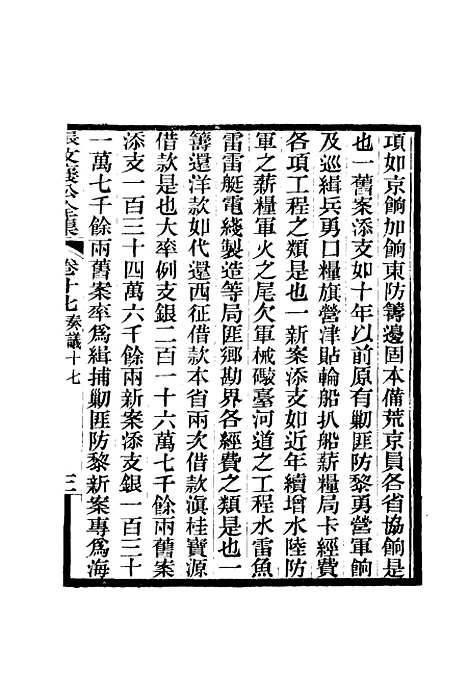 項如京餉加餉東防籌邊固本備荒京員各省協餉是
也一舊案添支如十年以前原有勦匪防黎勇營軍餉
及巡緝兵勇口糧旗營津貼輪船扒船薪糧局卡經費
各項工程之類是也一新案添支如近年續增水陸防
軍之薪糧軍火之尾欠軍械礮臺河道之工程水雷魚
雷雷艇電綫製造等局匪鄉勘界各經費之類是也一
籌還洋款如代還西征借款本省兩次借款滇桂寶源
借款是也大率例支銀二百一十六萬七千餘兩舊案
添支一百三十四萬六千餘兩新案添支銀一百三十
一萬七千餘兩舊案率爲緝捕勦匪防黎新案專爲海
張文襄公全集 卷十七 奏議十七 三